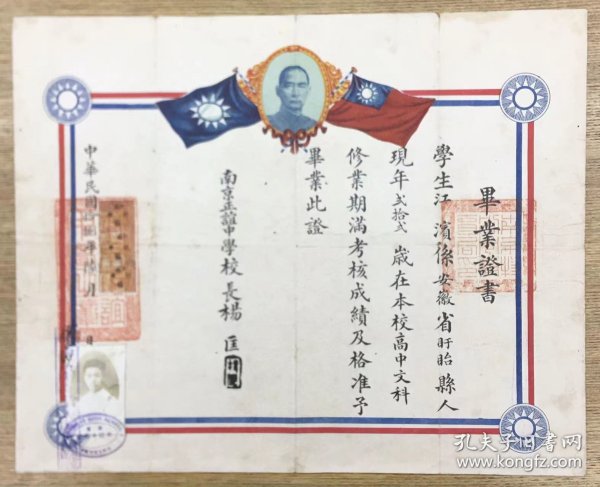 畢業證書
學生江濱係安徽省盱眙縣人
現年弍拾弍歲在本校高中文科
修業期滿考核成績及格准予
畢業此證
南京正誼中學校長楊匡
中華民國
月
日
孔夫子旧书网
www.kongfz.com